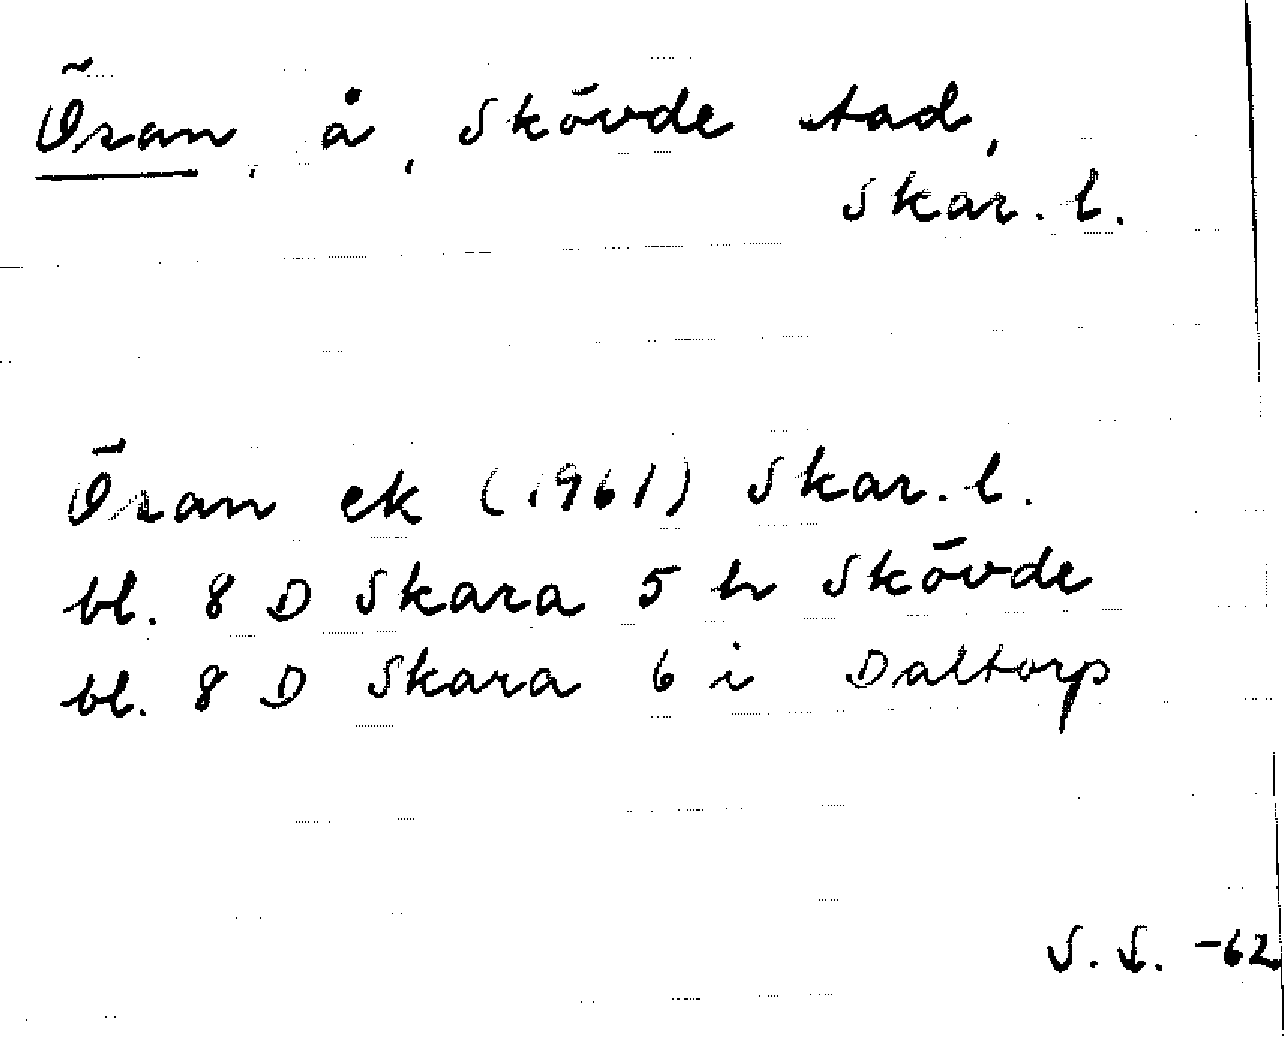 Ösan, å, Skövde stad,
Skar. l.
Ösan ek (1961) Skar. l.
bl. 8 D Skara 5 h Skövde
bl. 8 D Skara 6 i Daltorp
S. S. -62